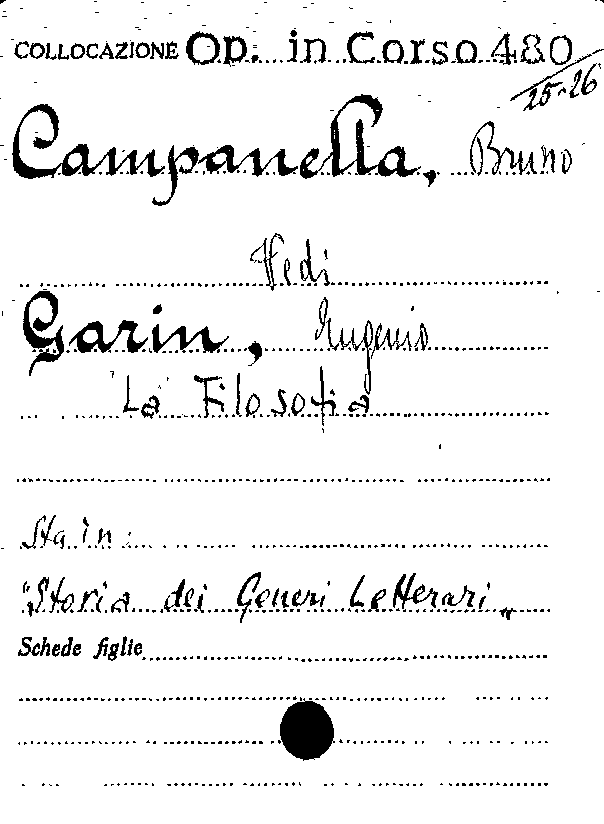 COLLOCAZIONE Op. in Corso 480
25-26
Campanella, Bruno
Vedi
Garin, Eugenio
La Filosofia
Sta in:
"Storia dei Generi Letterari„
Schede figlie